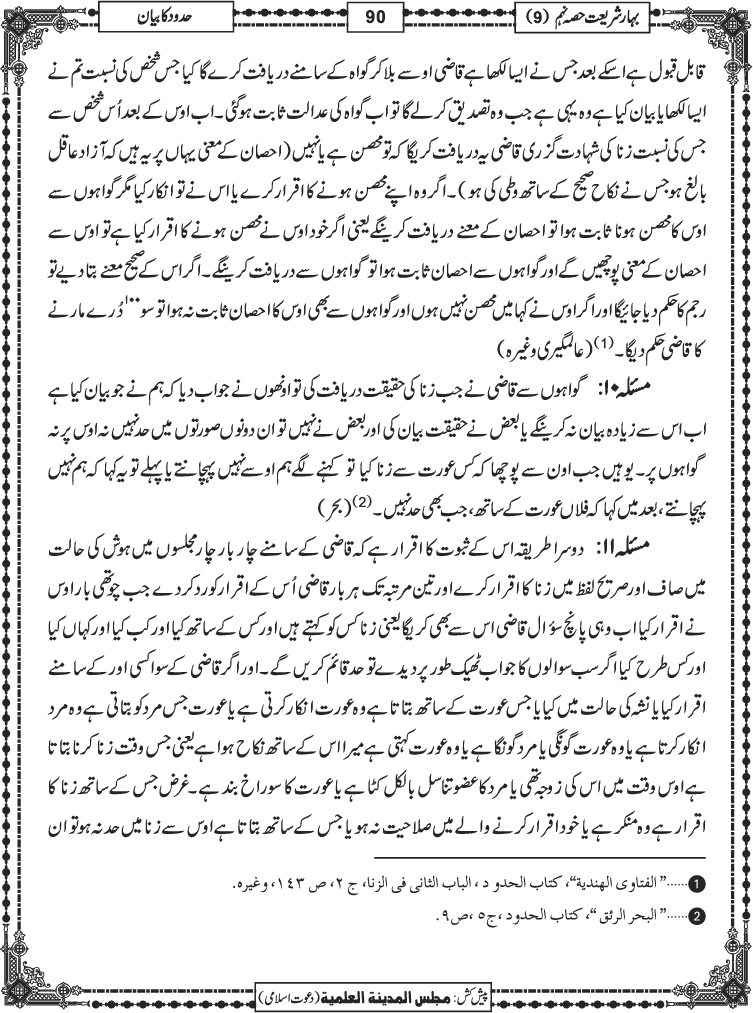 بہار شریعت حصہ نہم (9)
90
حدود کا بیان
قابل قبول ہے اسکے بعد جس نے ایسا لکھا ہے قاضی اوسے بلا کر گواہ کے سامنے دریافت کرے گا کیا جس شخص کی نسبت تم نے
ایسا لکھا یا بیان کیا ہے وہ یہی ہے جب وہ تصدیق کرلے گا تو اب گواہ کی عدالت ثابت ہوگئی۔ اب اوس کے بعد اُس شخص سے
جس کی نسبت زنا کی شہادت گزری قاضی یہ دریافت کریگا کہ تو محصن ہے یا نہیں (احصان کے معنی یہاں پر یہ ہیں کہ آزاد عاقل
بالغ ہو جس نے نکاح صحیح کے ساتھ وطی کی ہو)۔ اگر وہ اپنے محصن ہونے کا اقرار کرے یا اس نے تو انکار کیا مگر گواہوں سے
اوس کا محصن ہونا ثابت ہوا تو احصان کے معنے دریافت کرینگے یعنی اگر خود اوس نے محصن ہونے کا اقرار کیا ہے تو اوس سے
احصان کے معنی پوچھیں گے اور گواہوں سے احصان ثابت ہوا تو گواہوں سے دریافت کرینگے۔ اگر اس کے صحیح معنے بتا دیے تو
رجم کا حکم دیا جائیگا اور اگر اوس نے کہا میں محصن نہیں ہوں اور گواہوں سے بھی اوس کا احصان ثابت نہ ہوا تو سو۱۰۰ دُرے مارنے
کا قاضی حکم دیگا۔(1) (عالمگیری وغیرہ)
مسئلہ ۱۰: گواہوں سے قاضی نے جب زنا کی حقیقت دریافت کی تو اونھوں نے جواب دیا کہ ہم نے جو بیان کیا ہے
اب اس سے زیادہ بیان نہ کرینگے یا بعض نے حقیقت بیان کی اور بعض نے نہیں تو ان دونوں صورتوں میں حد نہیں نہ اوس پر نہ
گواہوں پر۔ یوہیں جب اون سے پوچھا کہ کس عورت سے زنا کیا تو کہنے لگے ہم اوسے نہیں پہچانتے یا پہلے تو یہ کہا کہ ہم نہیں
پہچانتے، بعد میں کہا کہ فلاں عورت کے ساتھ، جب بھی حد نہیں۔(2) (بحر)
مسئلہ ۱۱: دوسرا طریقہ اس کے ثبوت کا اقرار ہے کہ قاضی کے سامنے چار بار چار مجلسوں میں ہوش کی حالت
میں صاف اور صریح لفظ میں زنا کا اقرار کرے اور تین مرتبہ تک ہر بار قاضی اُس کے اقرار کو رد کردے جب چوتھی بار اوس
نے اقرار کیا اب وہی پانچ سوٴال قاضی اس سے بھی کریگا یعنی زنا کس کو کہتے ہیں اور کس کے ساتھ کیا اور کب کیا اور کہاں کیا
اور کس طرح کیا اگر سب سوالوں کا جواب ٹھیک طور پر دیدے تو حد قائم کریں گے۔ اور اگر قاضی کے سوا کسی اور کے سامنے
اقرار کیا یا نشہ کی حالت میں کیا یا جس عورت کے ساتھ بتاتا ہے وہ عورت انکار کرتی ہے یا عورت جس مرد کو بتاتی ہے وہ مرد
انکار کرتا ہے یا وہ عورت گونگی یا مرد گونگا ہے یا وہ عورت کہتی ہے میرا اس کے ساتھ نکاح ہوا ہے یعنی جس وقت زنا کرنا بتاتا
ہے اوس وقت میں اس کی زوجہ تھی یا مرد کا عضو تناسل بالکل کٹا ہے یا عورت کا سوراخ بند ہے۔ غرض جس کے ساتھ زنا کا
اقرار ہے وہ منکر ہے یا خود اقرار کرنے والے میں صلاحیت نہ ہو یا جس کے ساتھ بتاتا ہے اوس سے زنا میں حد نہ ہو تو ان
1......"الفتاوی الھندیة"، کتاب الحدود، الباب الثانی فی الزنا، ج ۲، ص ۱۴۳، وغیرہ.
2......"البحر الرئق"، کتاب الحدود، ج۵، ص۹.
پیش کش: مجلس المدینة العلمیة (دعوت اسلامی)